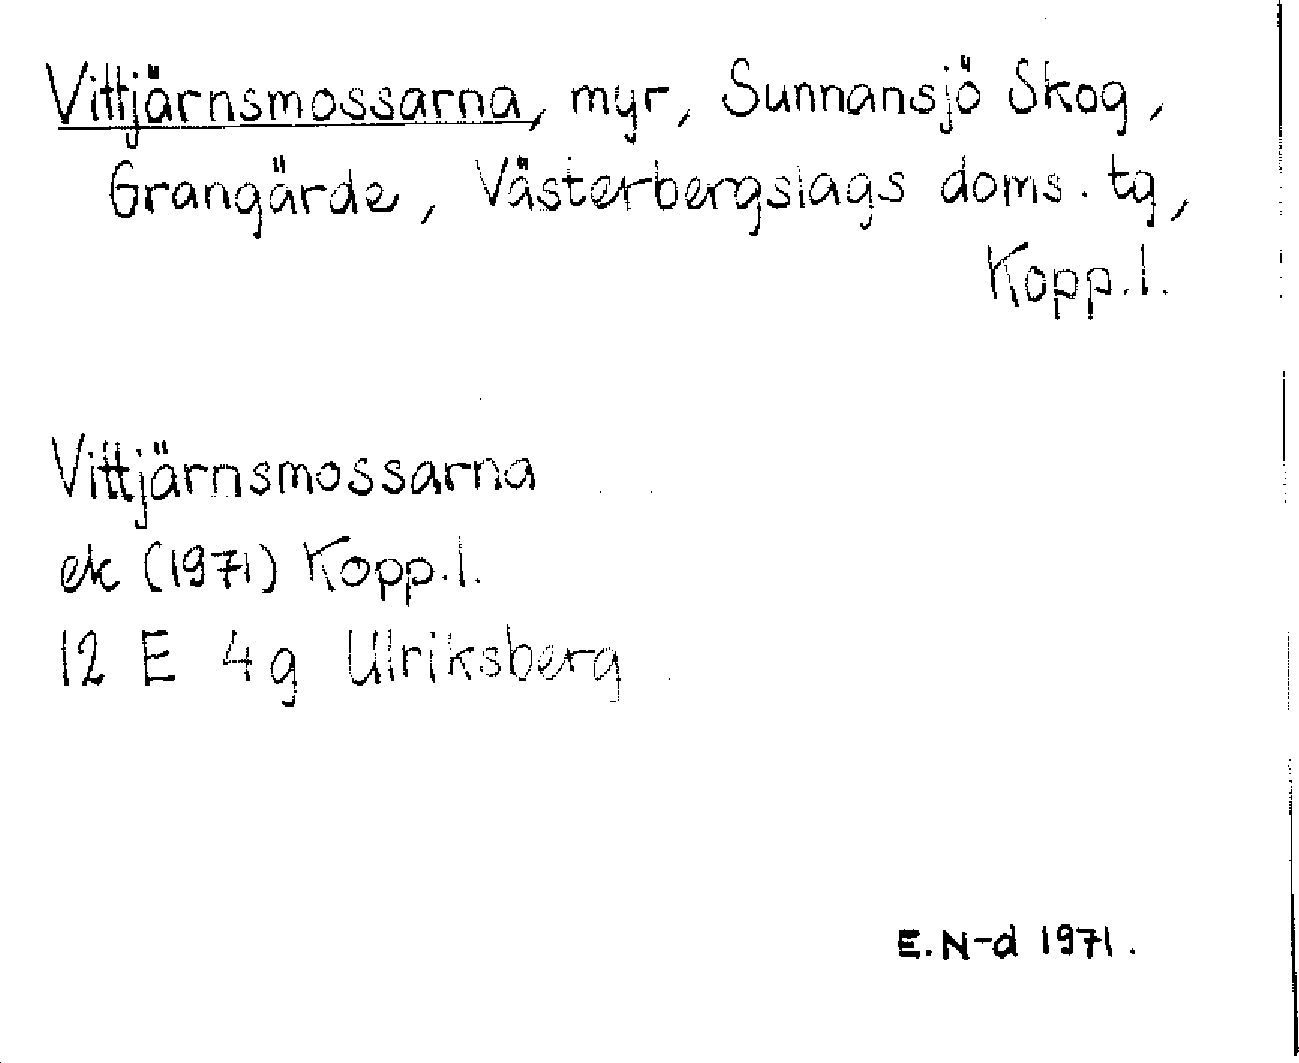 Vittjärnsmossarna, myr, Sunnansjö Skog,
Grangärde, Västerbergslags doms. tg,
Kopp.l.
Vittjärnsmossarna
ek (1971) Kopp.l.
12 E 4g Ulriksberg
E.N-d 1971.